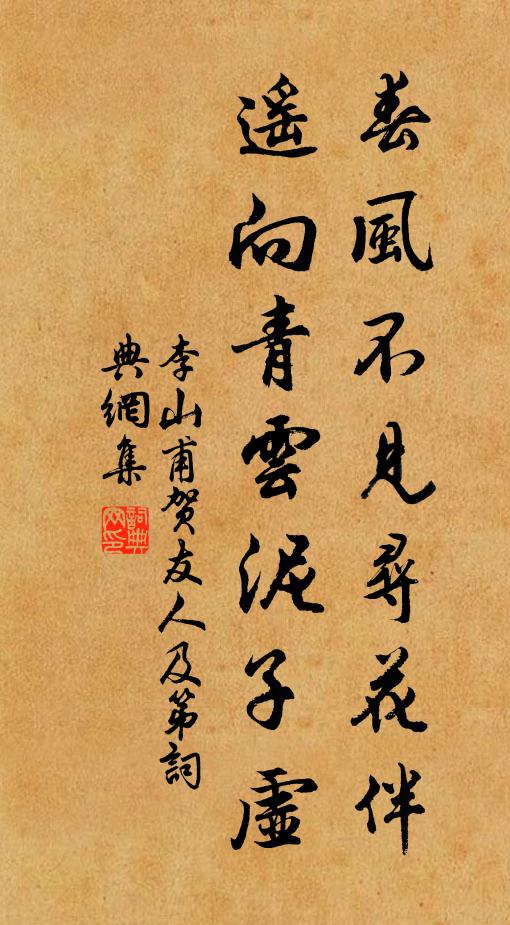 春風不見尋花伴
遙向青雲泥子虛
李山甫賀友人及第詞
典網集
詞典網印